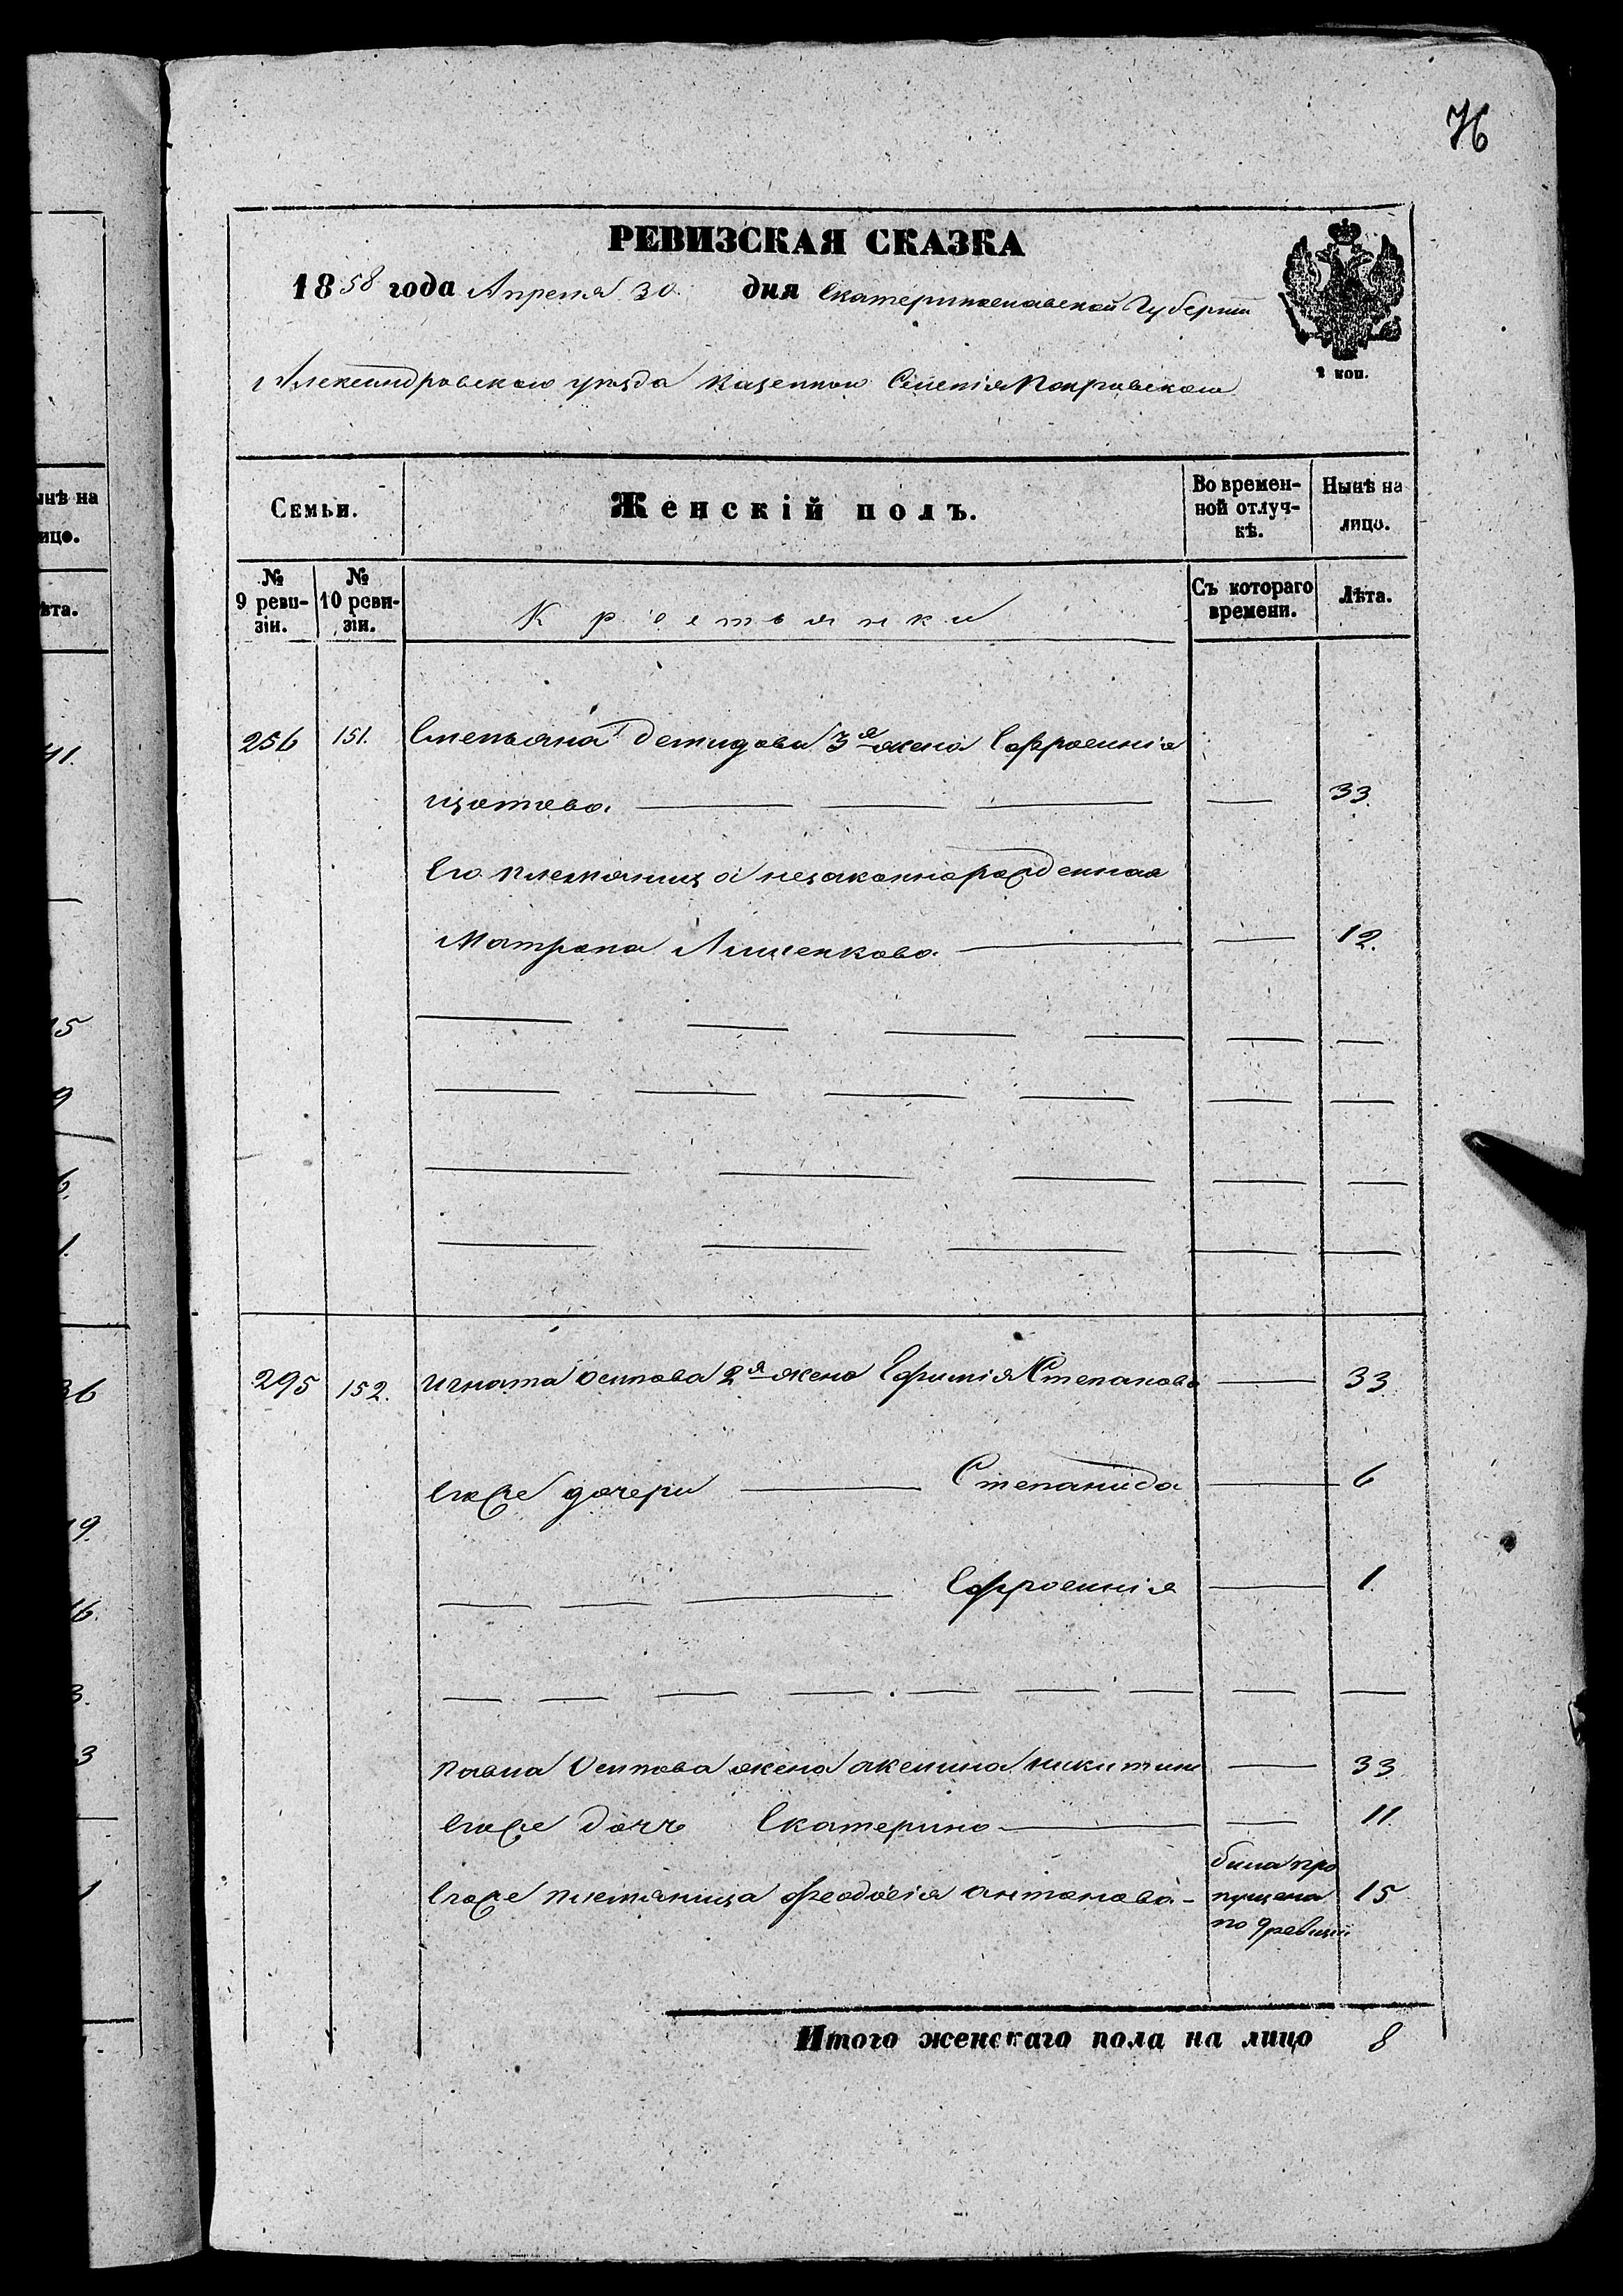 76
РЕВИЗСКАЯ СКАЗКА
1858 года Апреля 30 дня Екатеринославской Губернии
2 коп.
Александровского уезда Казенного Селения Покровского
Семьи. Женскій полъ. Во времен-ной отлуч-кѣ. Нынѣ на лицо.
№ 9 реви-зіи. № 10 реви-зіи. Крестьянки Съ котораго времени. Лѣта.
256 151. Степана Демидова 3я жена Ефросинія
33.
Его племянница незаконнорожденная
Матрона 12.
295 152. Игната Осипова 2я жена Ефимія Степанова 33
Егоже дочери Степанида 6
Ефросинія 1.
Павла Осипова жена Аксинья Никитина 33
Егоже дочь Екатерина 11.
Егоже племянница Феодосія Антонова была про 15
пущена
по 9 ревизіи
Итого женскаго пола на лицо 8
ынѣ на
ицо.
ѣта.
41.
15
9
6.
1.
36
19.
16.
3.
3
1